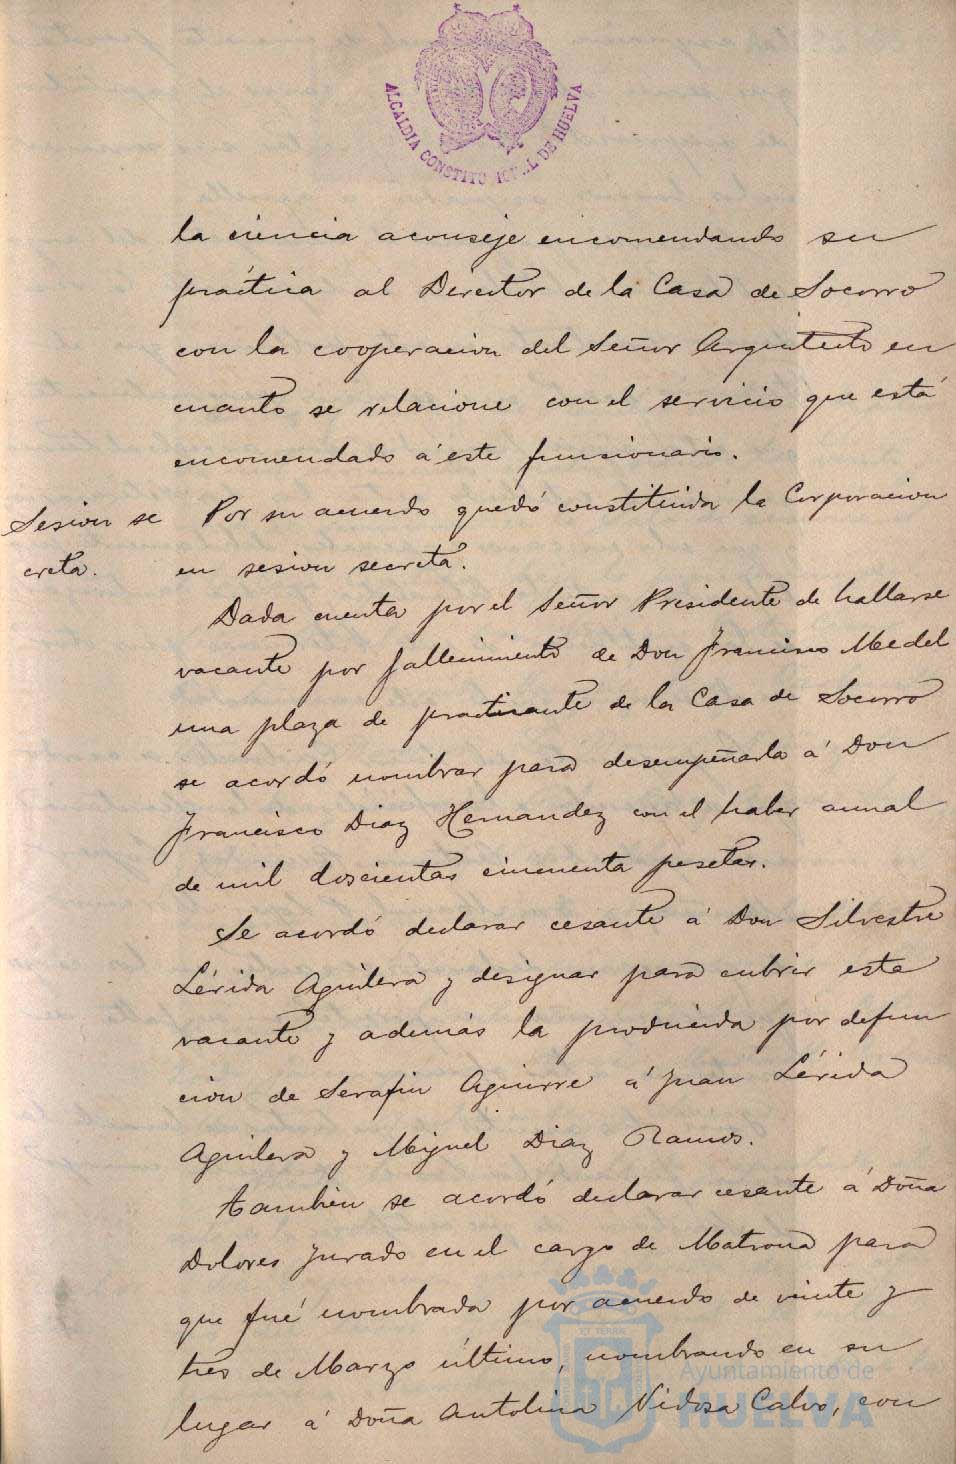 ALCALDIA CONSTITUCIONAL DE HUELVA
la ciencia aconseje encomendando su
práctica al Director de la Casa de Socorro
con la cooperacion del Señor Arquitecto en
cuanto se relacione con el servicio que está
encomendado á este funcionario.
Sesion se
creta.
Por su acuerdo quedó constituida la Corporacion
en sesion secreta.
Dada cuenta por el Señor Presidente de hallarse
vacante por fallecimiento de Don Francisco Medel
una plaza de practicante de la Casa de Socorro
se acordó nombrar para desempeñarla á Don
Francisco Diaz Hernandez con el haber anual
de mil doscientas cincuenta pesetas.
Se acordó declarar cesante á Don Silvestre
Lérida Aguilera y designar para cubrir esta
vacante y además la producida por defun
cion de Serafin Aguirre á Juan Lérida
Aguilera y Miguel Diaz Ramos.
Tambien se acordó declarar cesante á Doña
Dolores Jurado en el cargo de Matrona para
que fué nombrada por acuerdo de veinte y
tres de Marzo último, nombrando en su
lugar á Doña Antolina Vidosa Calvo, con
Ayuntamiento de
HUELVA